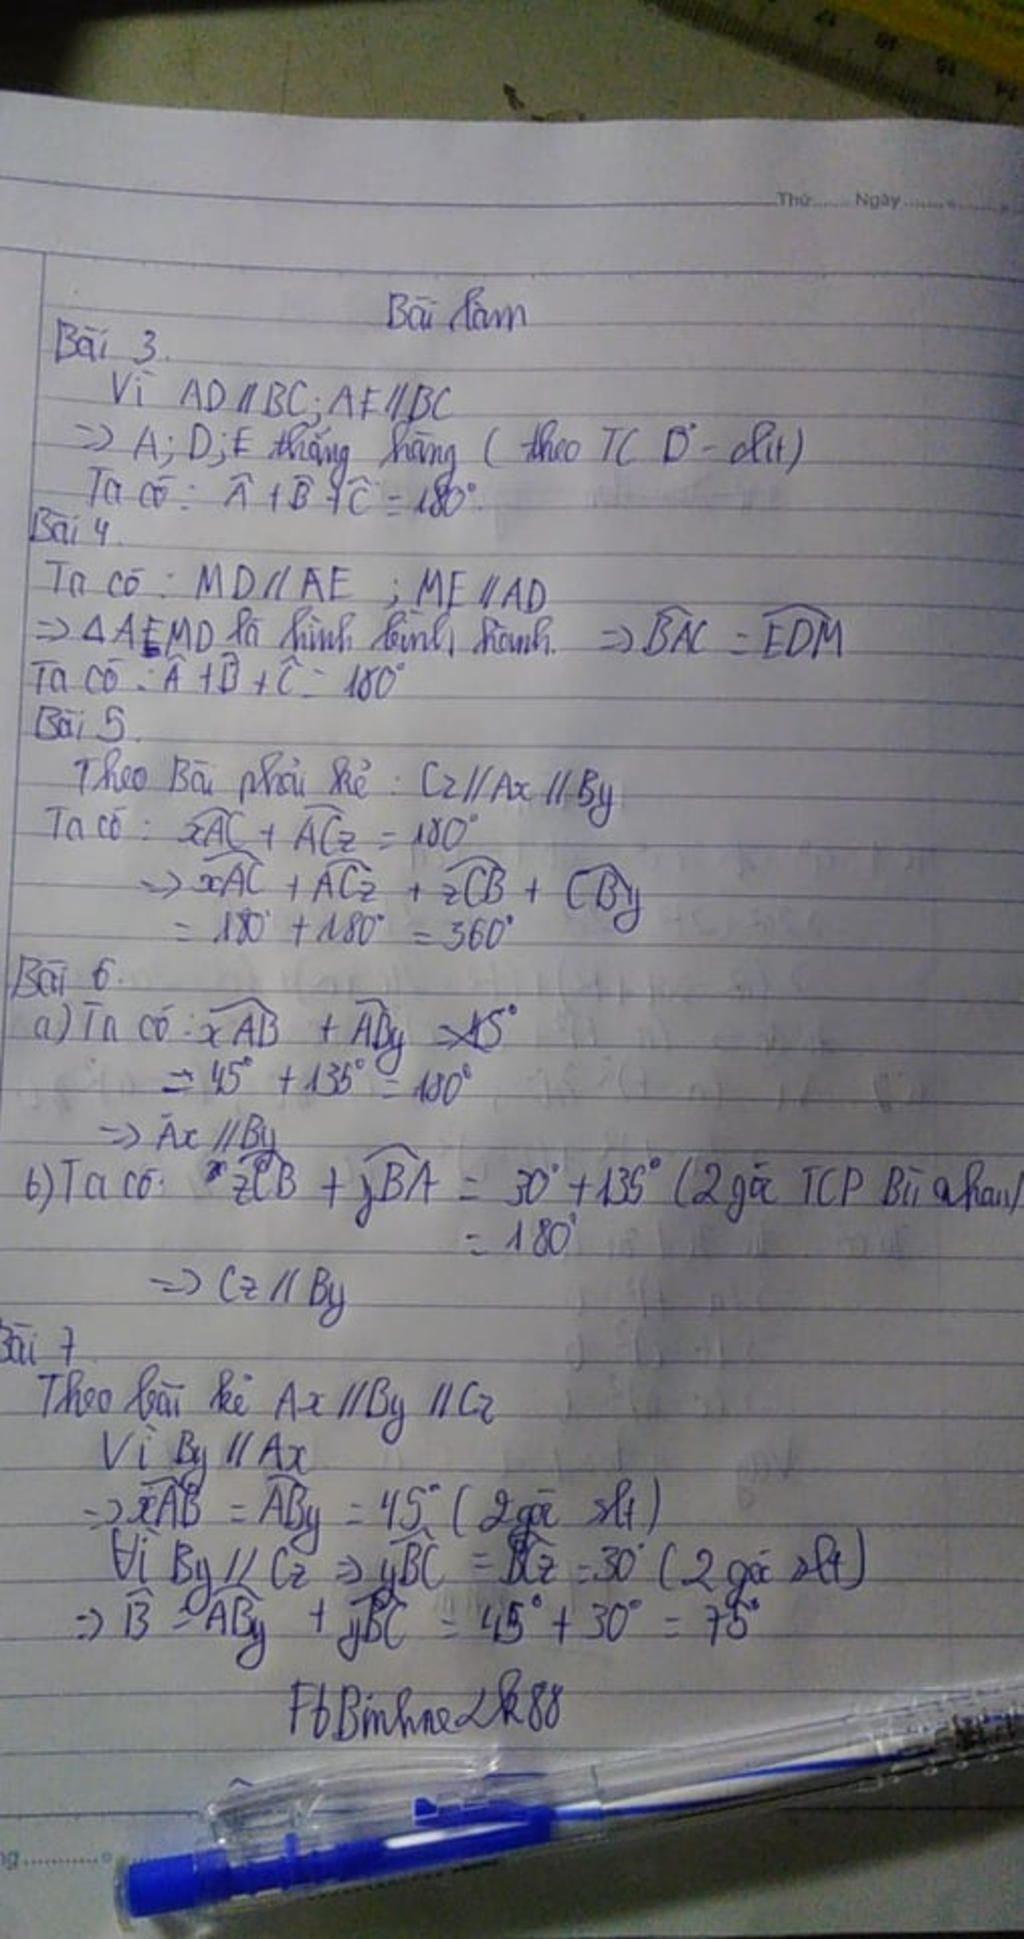 Thứ...... Ngày............
Bài làm
Bài 3.
Vì AD // BC; AE // BC
=> A; D; E thẳng hàng ( theo TC Ơ - clit)
Ta có: Â + B̂ + Ĉ = 180°.
Bài 4.
Ta có: MD // AE ; ME // AD
=> Δ AEMD là hình bình hành. => BAC = EDM
Ta có: Â + B̂ + Ĉ = 180°
Bài 5.
Theo Bài phải kẻ : Cz // Ax // By
Ta có: xAC + ACz = 180°
=> xAC + ACz + zCB + CBy
= 180° + 180° = 360°
Bài 6.
a) Ta có: xAB + ABy
= 45° + 135° = 180°
=> Ax // By
b) Ta có: zCB + yBA = 30° + 135° ( 2 góc TCP Bù nhau)
= 180°
=> Cz // By
Bài 7
Theo bài kẻ Ax // By // Cz
Vì By // Ax
=> xAB = ABy = 45° ( 2 góc slt)
Vì By // Cz => yBC = BCz = 30° ( 2 góc slt)
=> B̂ = ABy + yBC = 45° + 30° = 75°
FbBinhne2k88